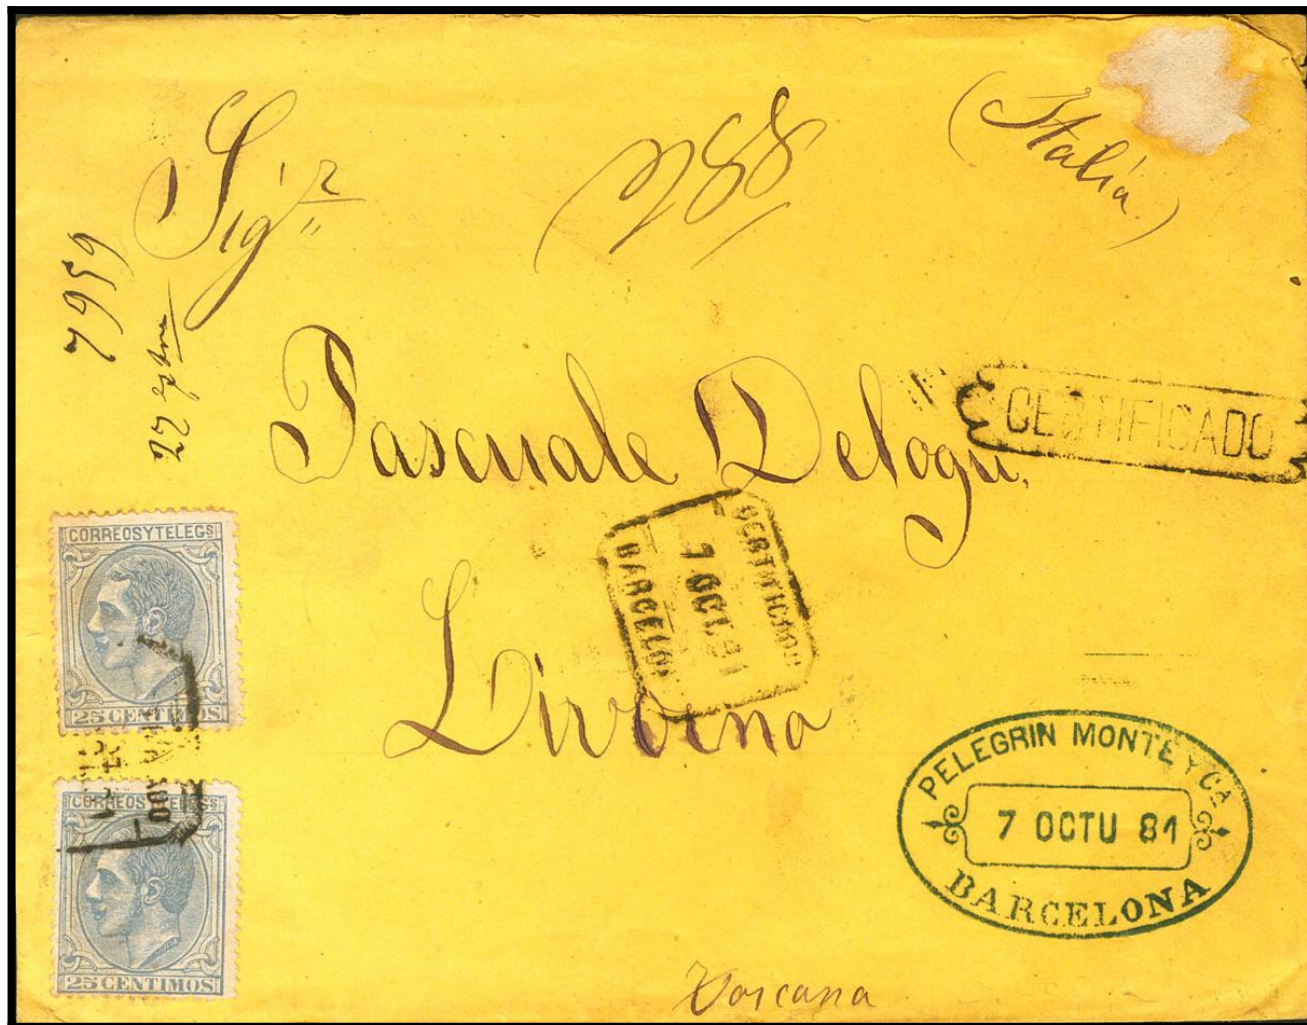 Sigr
288
(Italia.)
7959
Pascuale Delogu,
CERTIFICADO
CERTIFICADO
7 OCT. 81
BARCELO
Livorno
CORREOS Y TELEGS
25 CENTIMOS
CORREOS TELEGS
25 CENTIMOS
PELEGRIN MONTE Y CA
7 OCTU 81
BARCELONA
Toscana